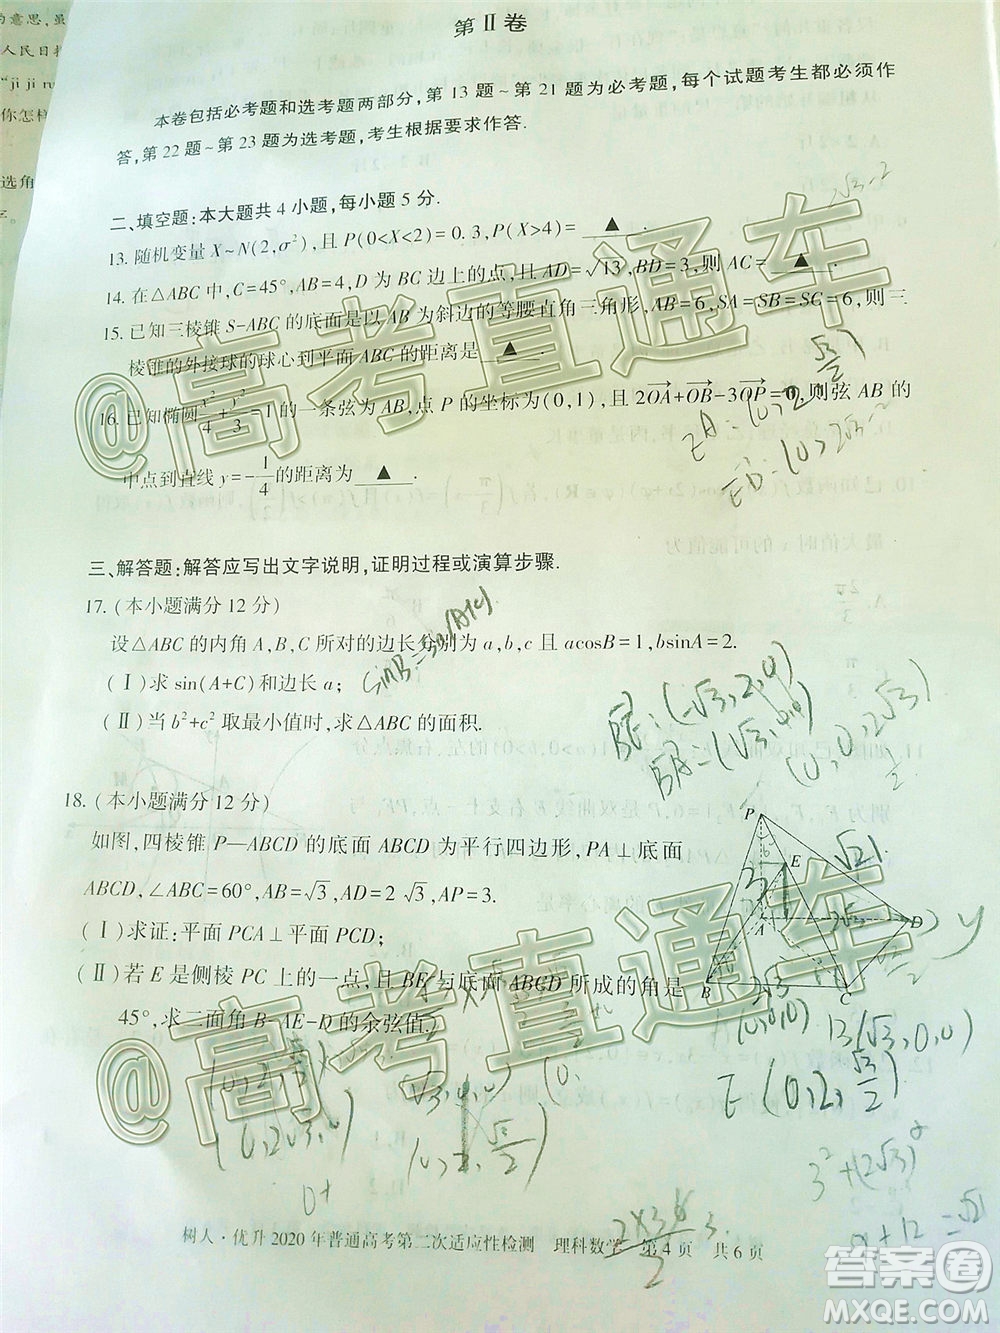 的意思,虽
人民日报
"ji ji ru
你怎样
选角
第Ⅱ卷
本卷包括必考题和选考题两部分,第13题~第21题为必考题,每个试题考生都必须作
答,第22题~第23题为选考题,考生根据要求作答.
二、填空题:本大题共4小题,每小题5分.
13. 随机变量 X~N(2,σ²),且 P(0<X<2)=0.3,P(X>4)=▲.
14. 在△ABC 中,C=45°,AB=4,D 为 BC 边上的点,且 AD=√13,BD=3,则 AC=▲.
15. 已知三棱锥 S-ABC 的底面是以 AB 为斜边的等腰直角三角形,AB=6,SA=SB=SC=6,则三
棱锥的外接球的球心到平面 ABC 的距离是▲.
16. 已知椭圆 x²/4+y²/3=1 的一条弦为 AB,点 P 的坐标为(0,1),且 2OA+OB-3OP=0,则弦 AB 的
中点到直线 y=-1/4 的距离为▲.
三、解答题:解答应写出文字说明,证明过程或演算步骤.
17. (本小题满分12分)
设△ABC 的内角 A,B,C 所对的边长分别为 a,b,c 且 acosB=1,bsinA=2.
(Ⅰ)求 sin(A+C)和边长 a;
(Ⅱ)当 b²+c² 取最小值时,求△ABC 的面积.
18. (本小题满分12分)
如图,四棱锥 P—ABCD 的底面 ABCD 为平行四边形,PA⊥底面
ABCD,∠ABC=60°,AB=√3,AD=2√3,AP=3.
(Ⅰ)求证:平面 PCA⊥平面 PCD;
(Ⅱ)若 E 是侧棱 PC 上的一点,且 BE 与底面 ABCD 所成的角是
45°,求二面角 B-AE-D 的余弦值.
P
E
A
D
B
C
y
√21
E(0,2,√3/2)
B(√3,0,0)
(0,0,0)
3²+(2√3)²
树人·优升2020年普通高考第二次适应性检测 理科数学 第4页 共6页
@高考直通车
@高考直通车
答案圈
MXQE.COM